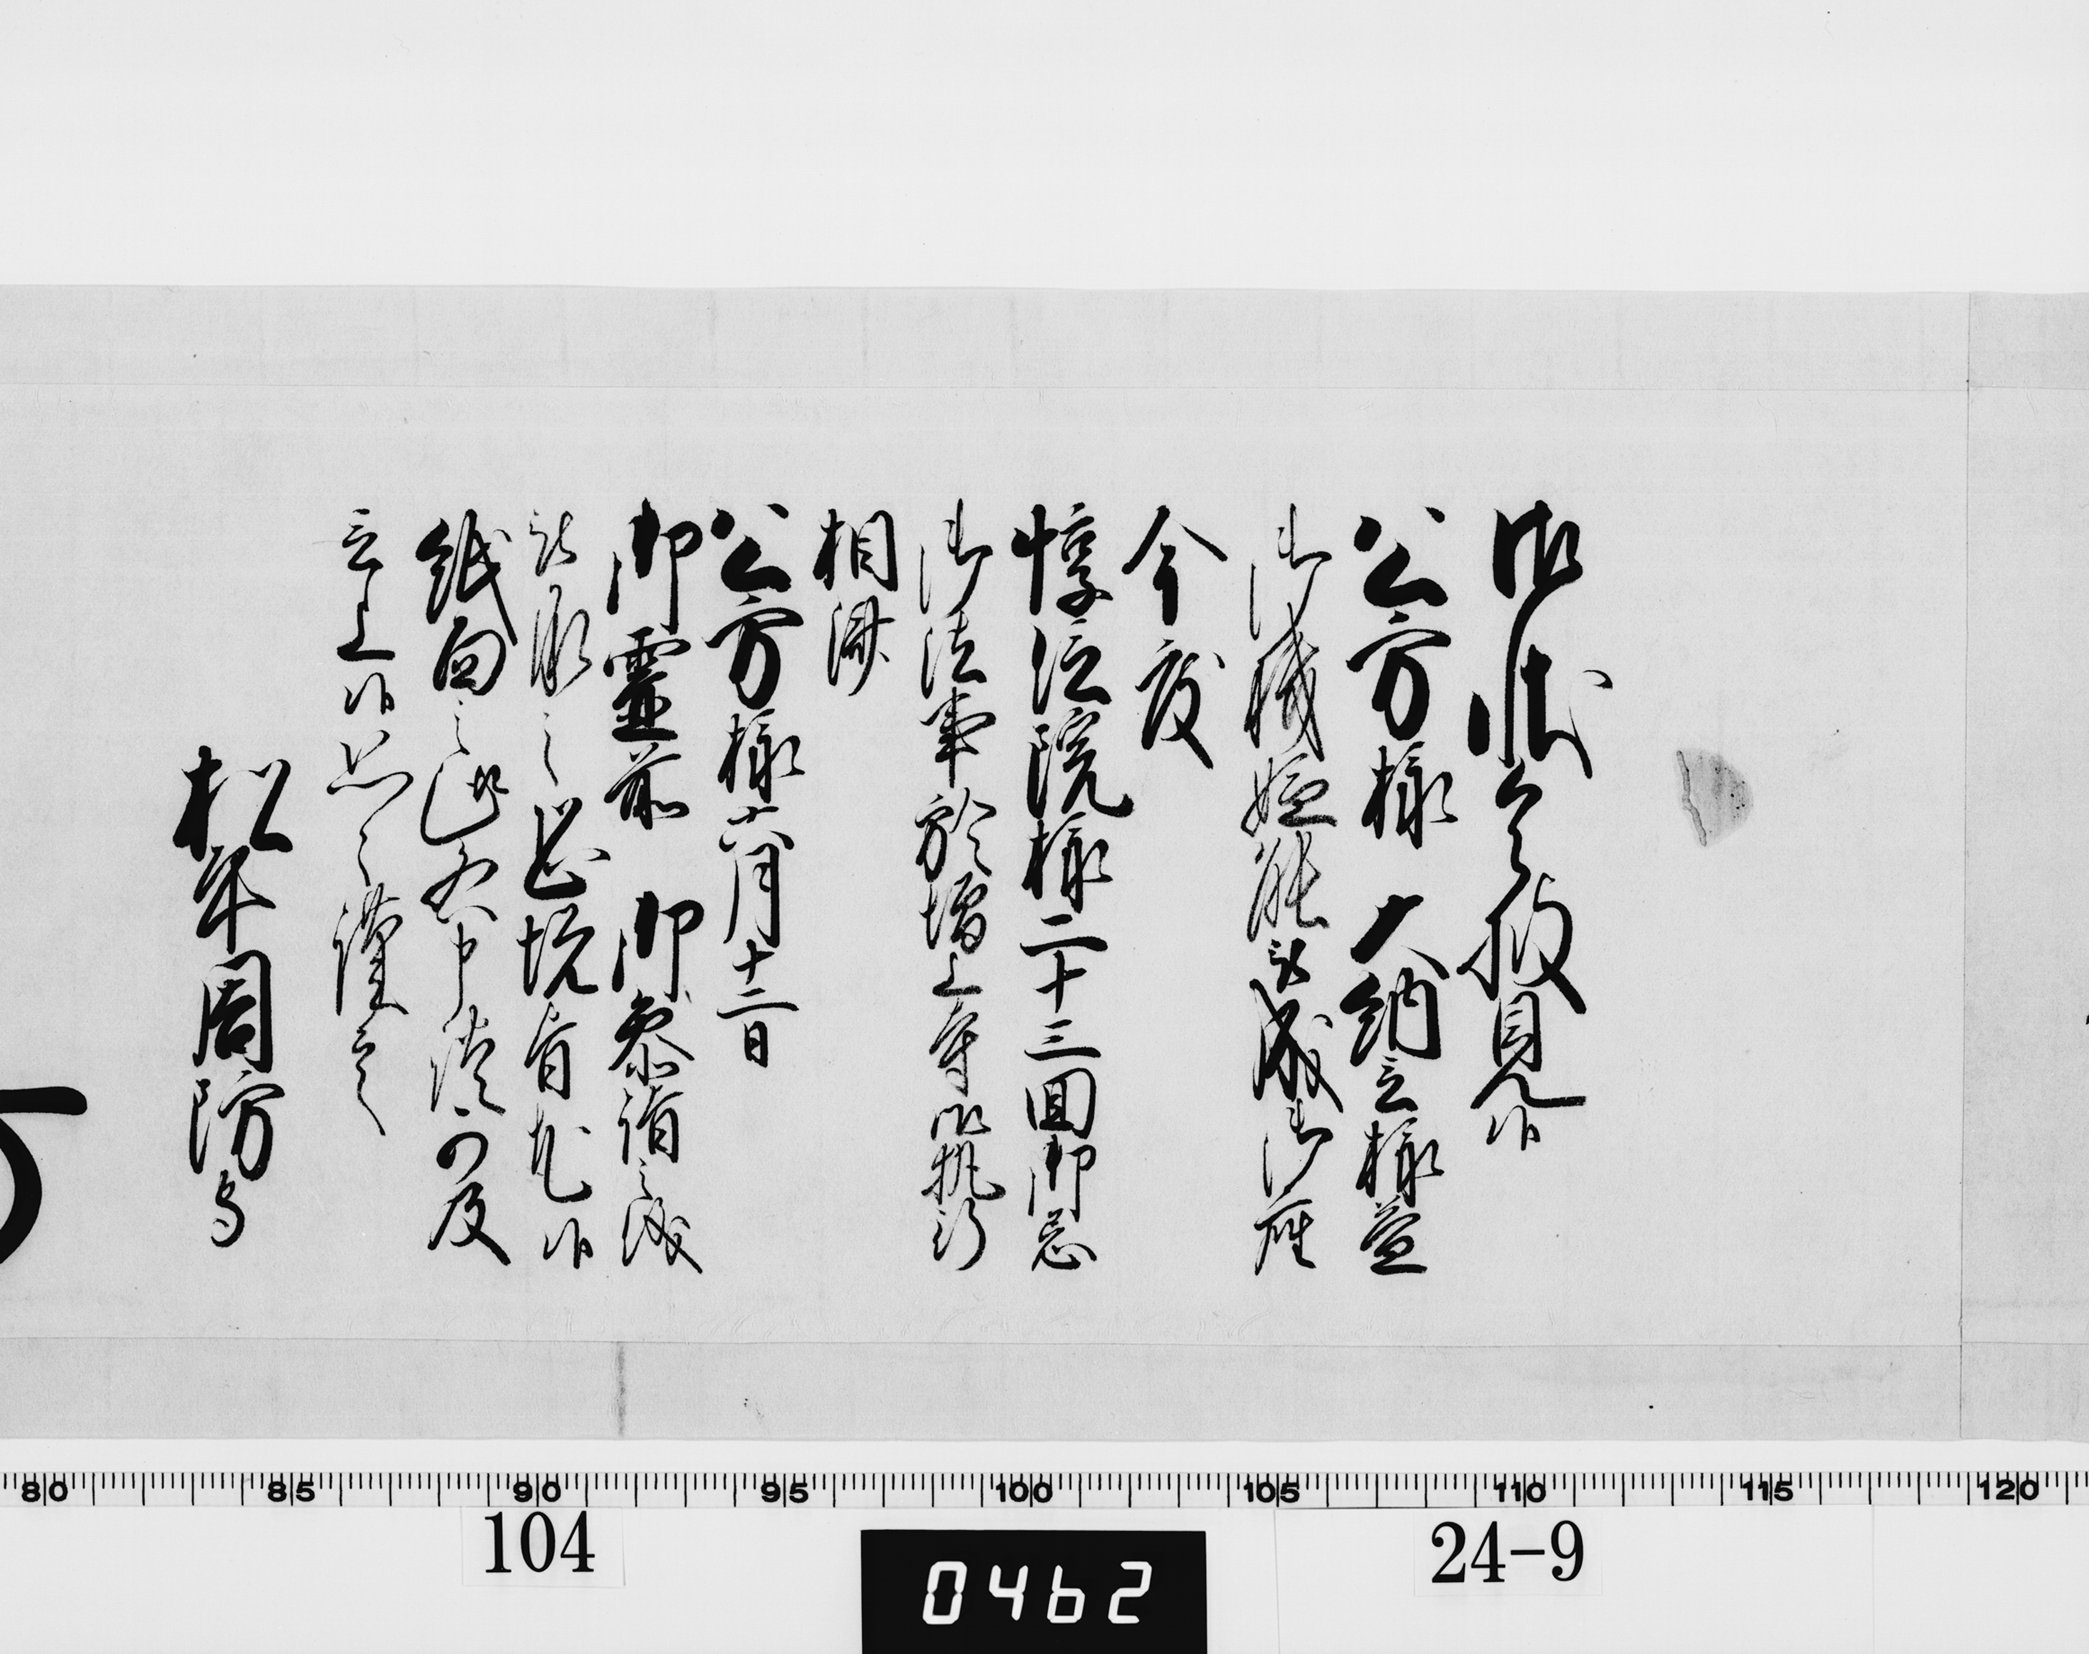 御状令披見候
公方様 大納言様益
御機嫌能被成御座
今度
惇信院様二十三回御忌
御法事於増上寺御執行
相済
公方様六月十二日
御霊前 御参詣被成
被承之恐悦旨尤候
紙面之趣各申談可及
言上候恐々謹言
松平周防守
80 85 90 95 100 105 110 115 120
104
0462
24-9